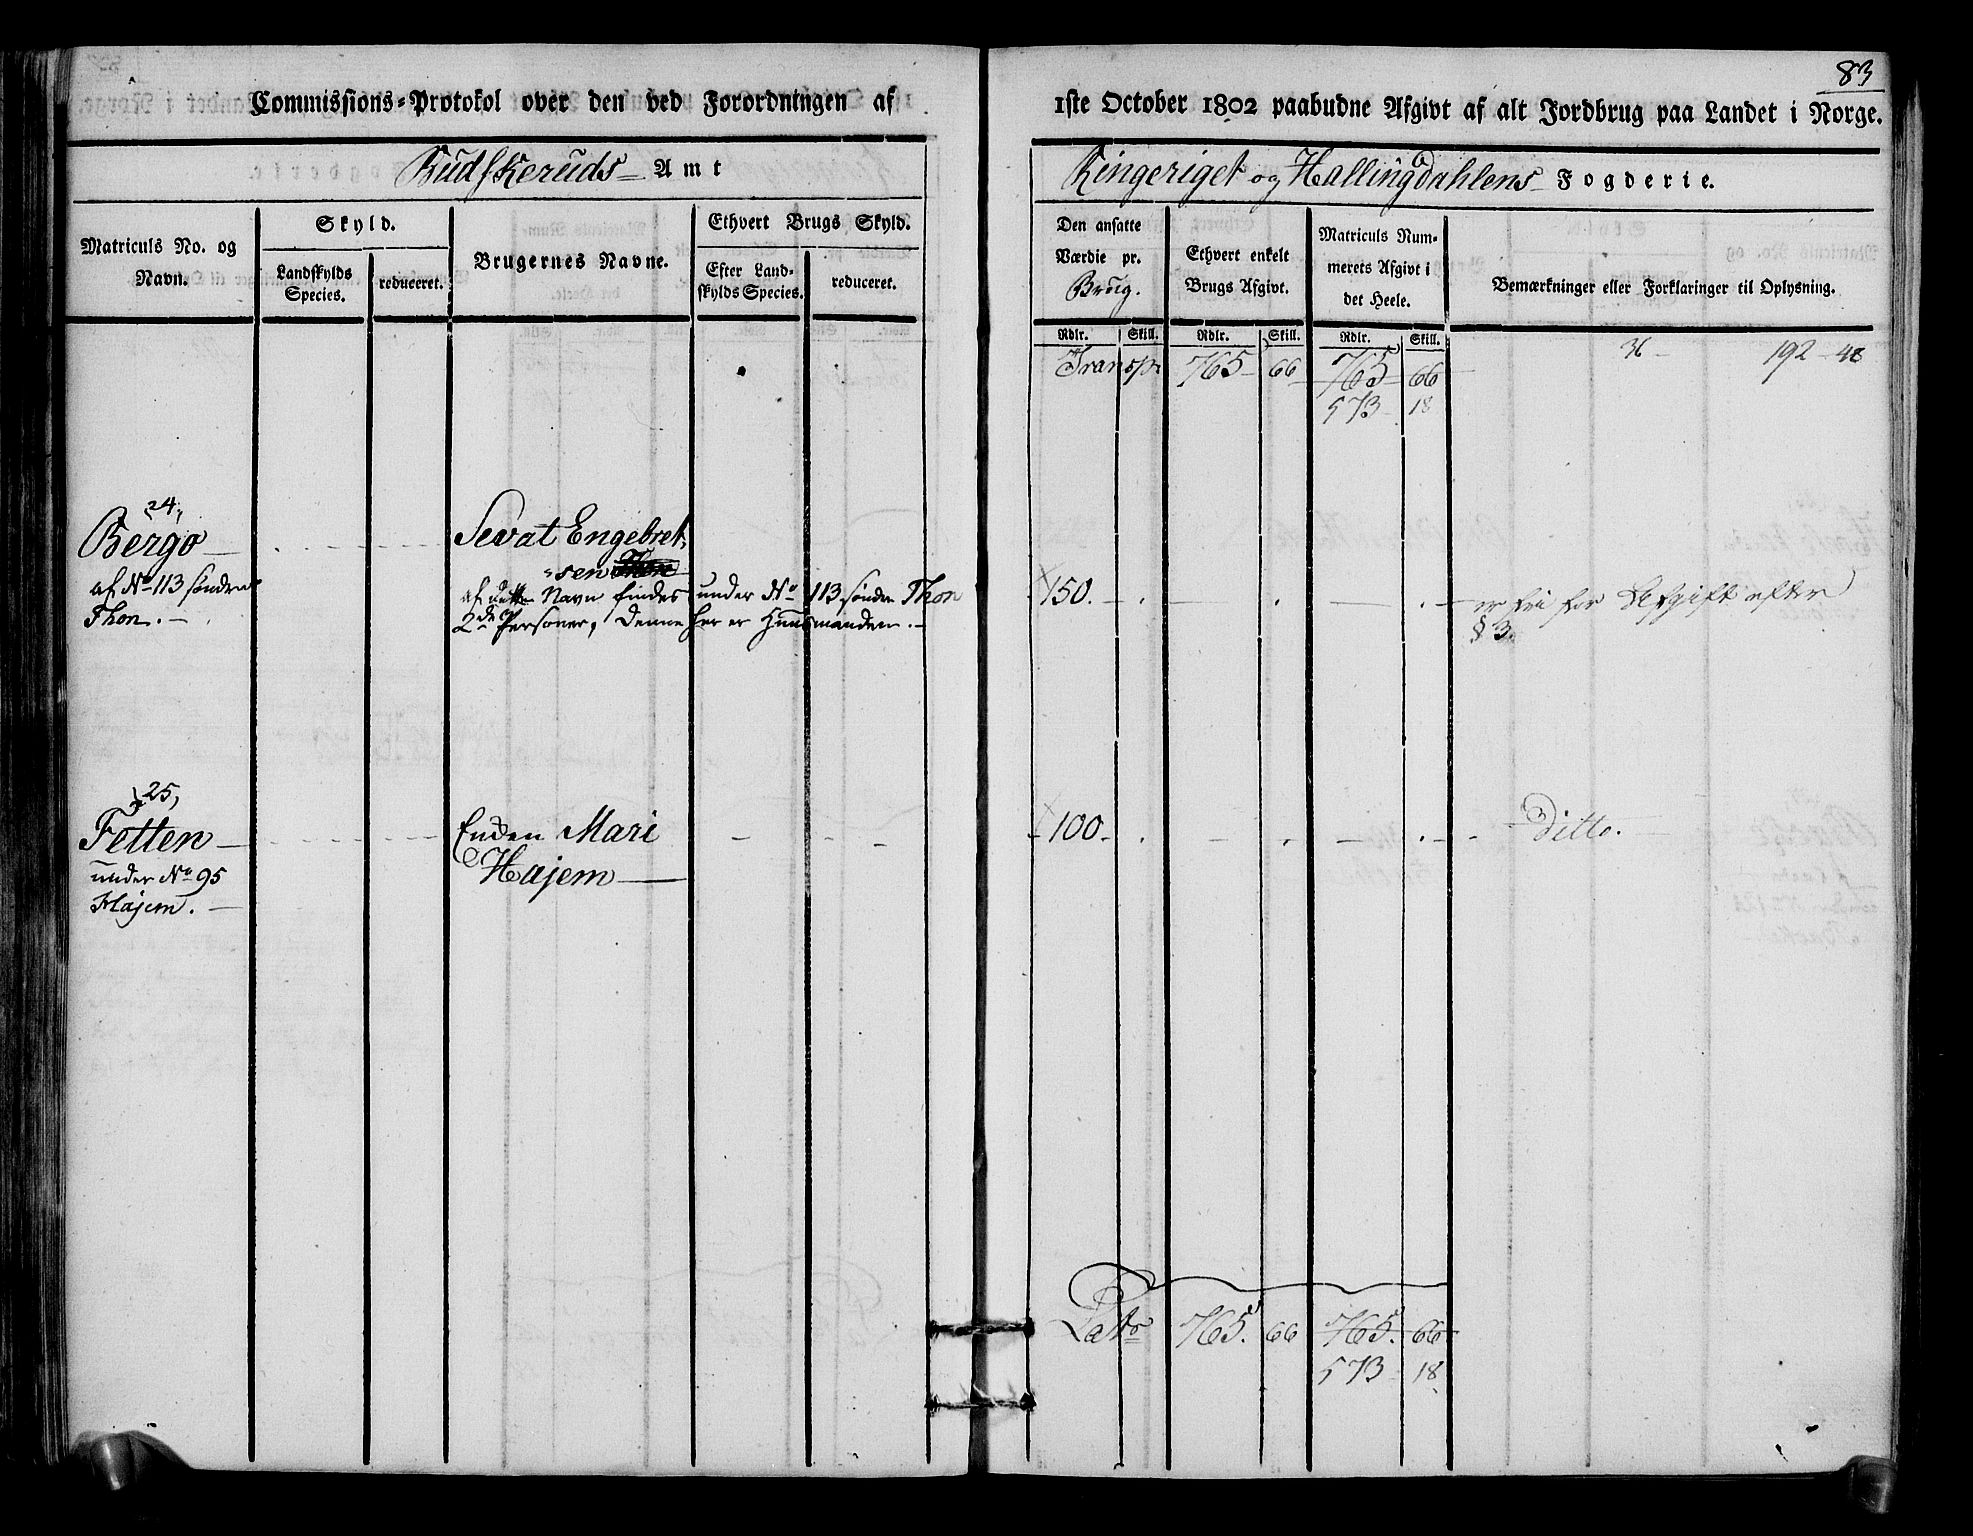 83
Commissions-Protokol over den ved Forordningen af 1ste October 1802 paabudne Afgivt af alt Jordbrug paa Landet i Norge.
Budskeruds Amt
Ringeriget og Hallingdahlens Fogderie.
Matriculs No. og Navn.
Skyld.
Landskylds Species.
reduceret.
Brugernes Navne.
Ethvert Brugs Skyld.
Efter Landskylds Species.
reduceret.
Den ansatte Værdie pr. Brug.
Ethvert enkelt Brugs Afgivt.
Matriculs Nummerets Afgivt i det Heele.
Bemærkninger eller Forklaringer til Oplysning.
Rdlr. Skill. Rdlr. Skill. Rdlr. Skill.
Transp. 765 66 765 66 36 192 - 48
573 18
24,
Bergo
af No 113 søndre
Thon.
Sevat Engebret-
sen Thon
af dette Navn findes under No 113 søndre Thon
2de Personer, denne her er Huusmanden.
150.
er fri for Afgift efter
§ 3.
25,
Fetten
under No 95
Hajem.
Enken Mari
Hajem
100
Ditto.
Lats 765. 66 765. 66
573 18